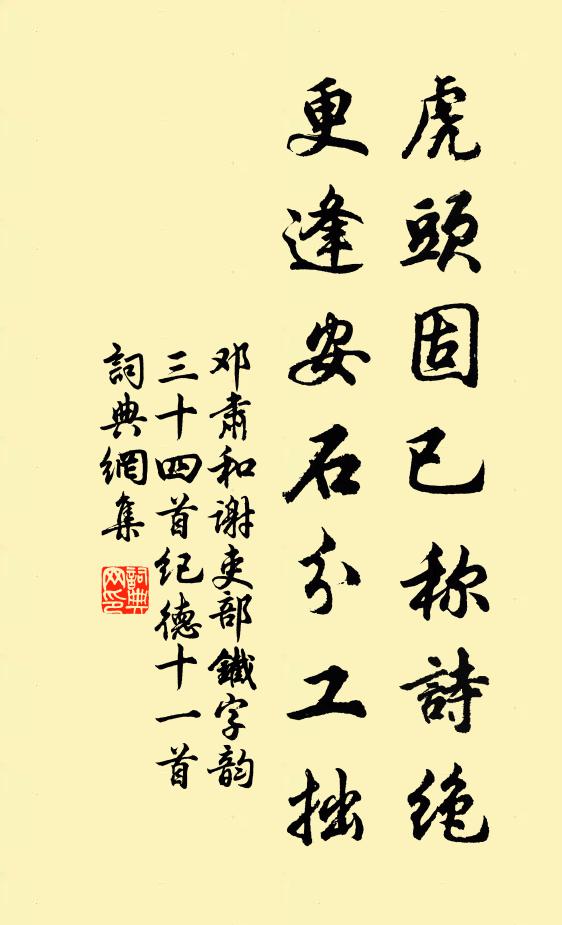 虎頭固已称詩絶
更逢安石分工拙
邓肅和谢吏部鐵字韵
三十四首纪德十一首
詞典網集
詞典網印